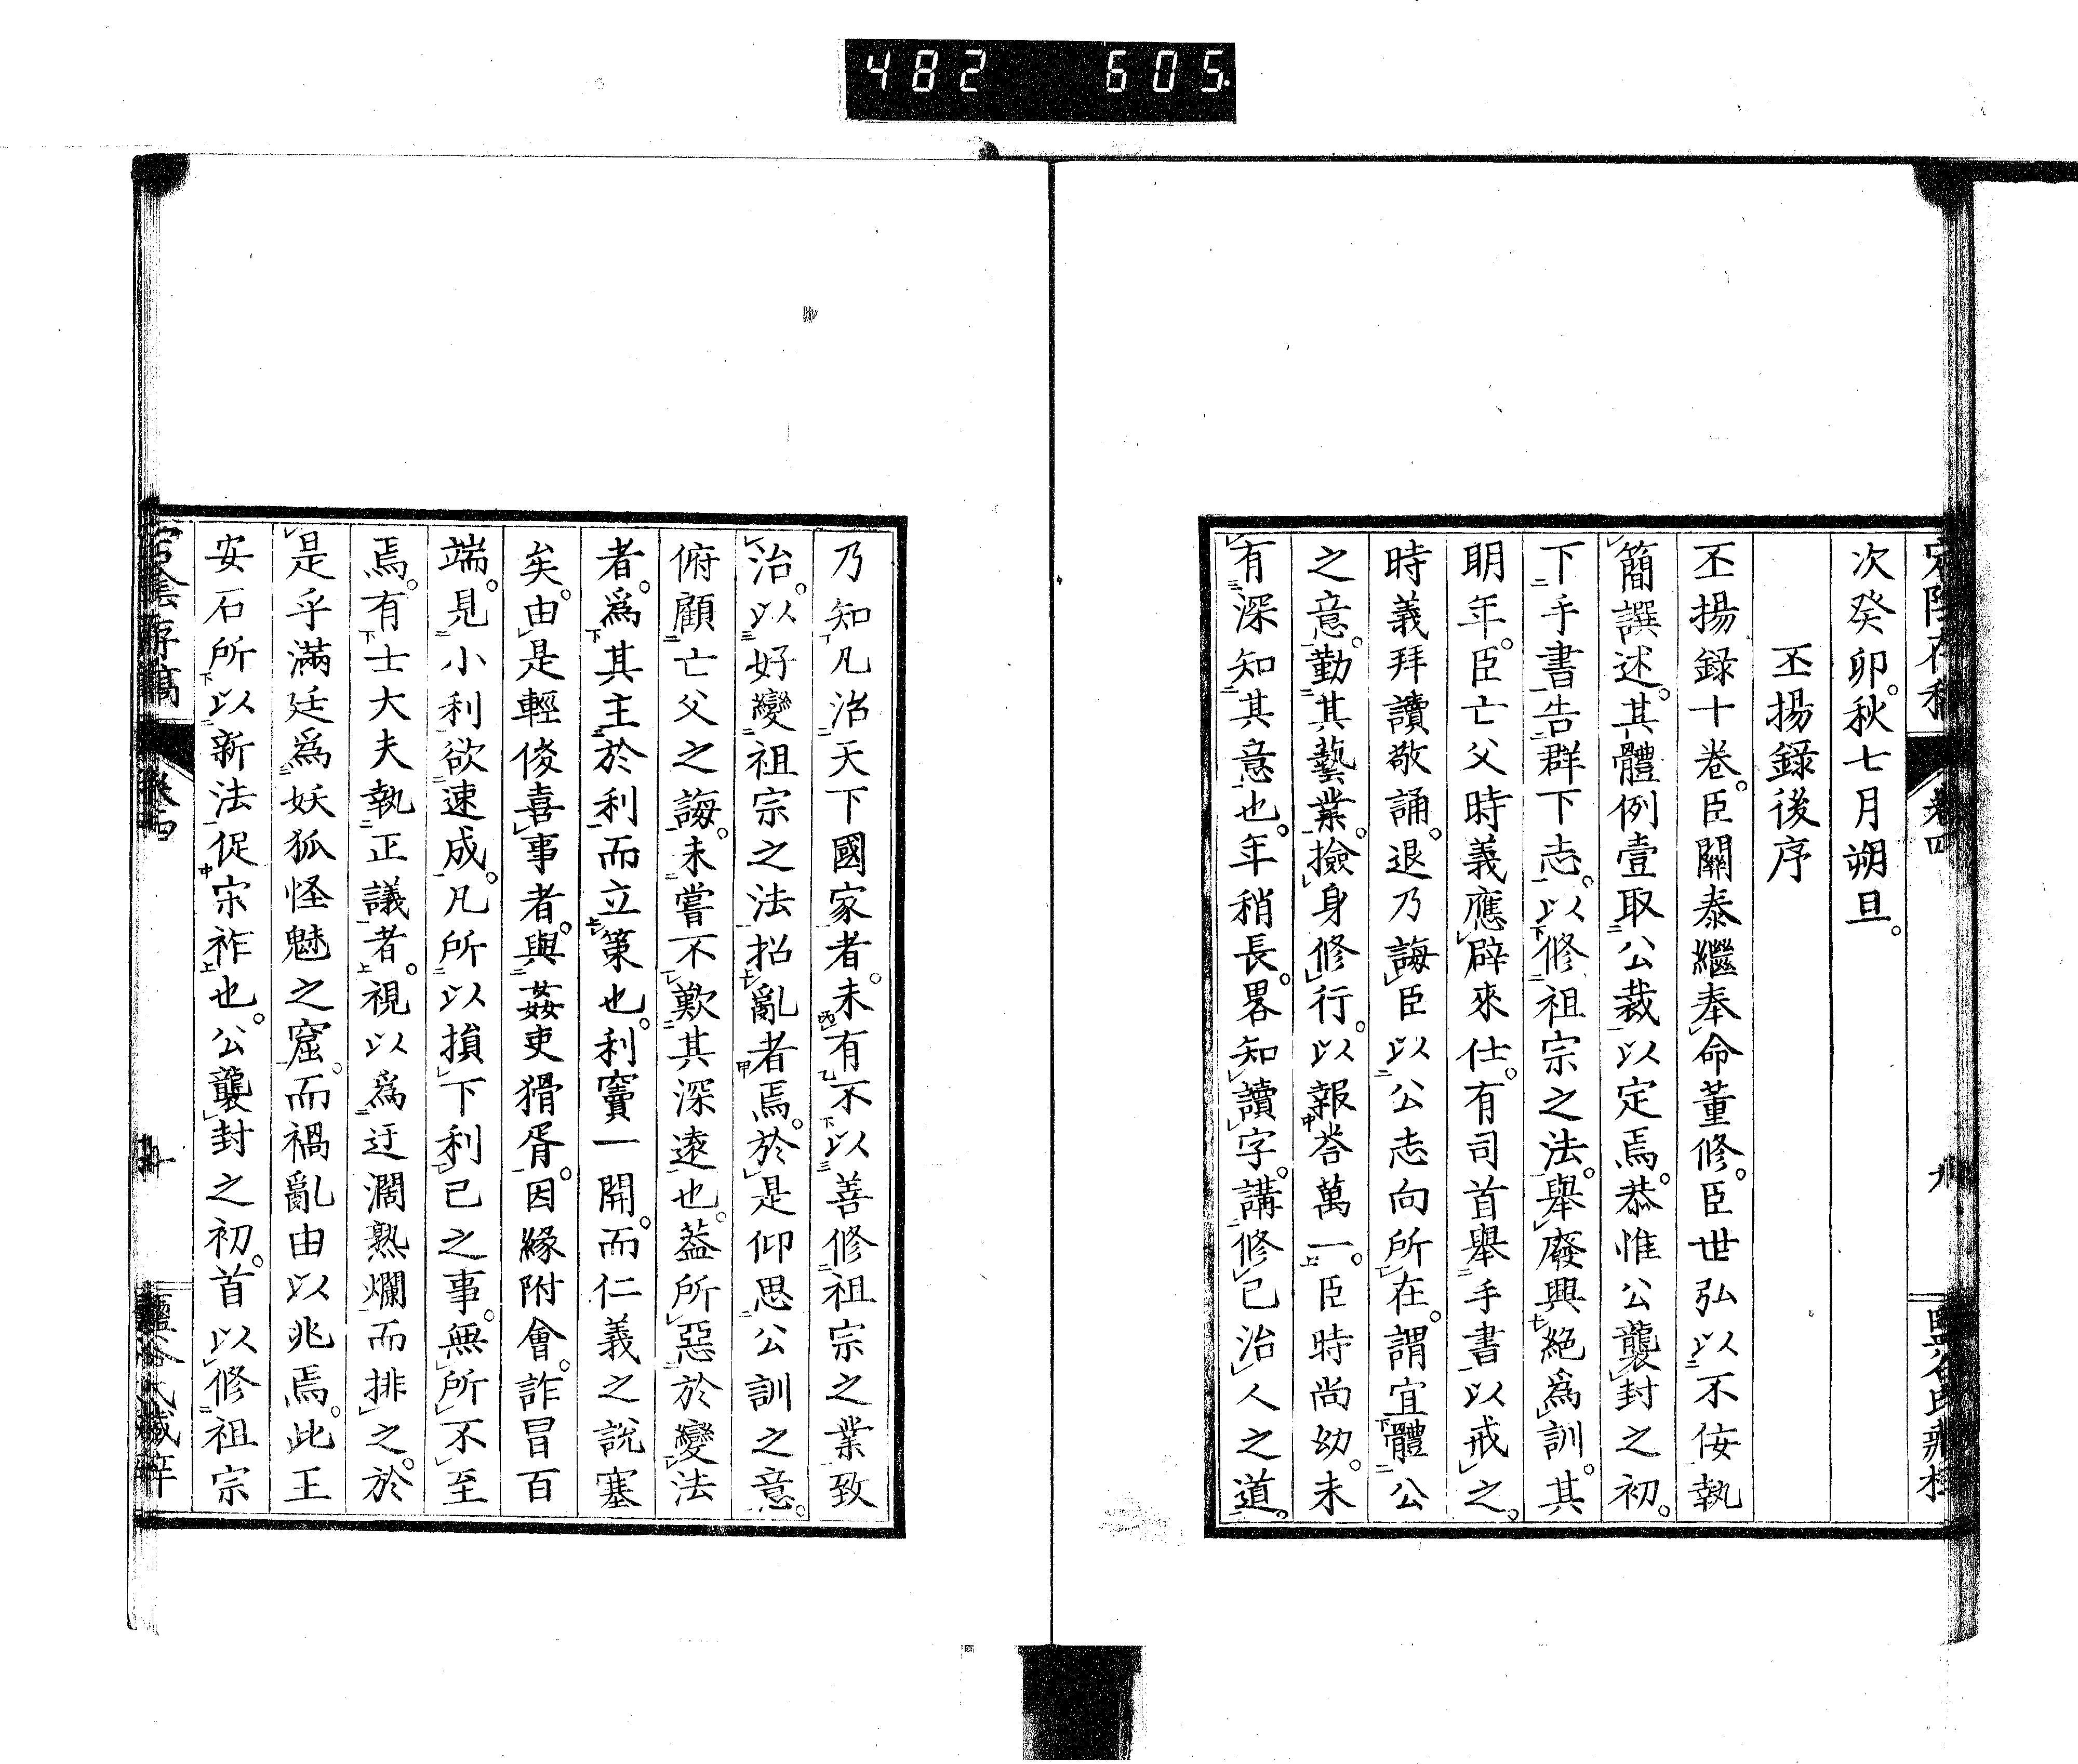 482 605
次癸卯。秋七月朔旦。
丕揚錄後序
丕揚錄十卷。臣關泰繼奉命董修。臣世弘以不侫執
簡譔述。其體例壹取公裁以定焉。恭惟公襲封之初。
下手書告群下志。以修祖宗之法。舉廢興絕爲訓。其
明年。臣亡父時義應辟來仕。有司首舉手書以戒之。
時義拜讀敬誦。退乃誨臣以公志向所在。謂宜體公
之意。勤其藝業。撿身修行。以報荅萬一。臣時尚幼。未
有深知其意也。年稍長。畧知讀字。講修己治人之道。
乃知凡治天下國家者。未有不以善修祖宗之業致
治。以好變祖宗之法招亂者焉。於是仰思公訓之意。
俯顧亡父之誨。未嘗不歎其深遠也。葢所惡於變法
者。爲其主於利而立策也。利竇一開。而仁義之說塞
矣。由是輕俊喜事者。與姦吏猾胥。因緣附會。詐冒百
端。見小利欲速成。凡所以損下利己之事。無所不至
焉。有士大夫執正議者。視以爲迂濶熟爛而排之。於
是乎滿廷爲妖狐怪魅之窟。而禍亂由以兆焉。此王
安石所以新法促宋祚也。公襲封之初。首以修祖宗